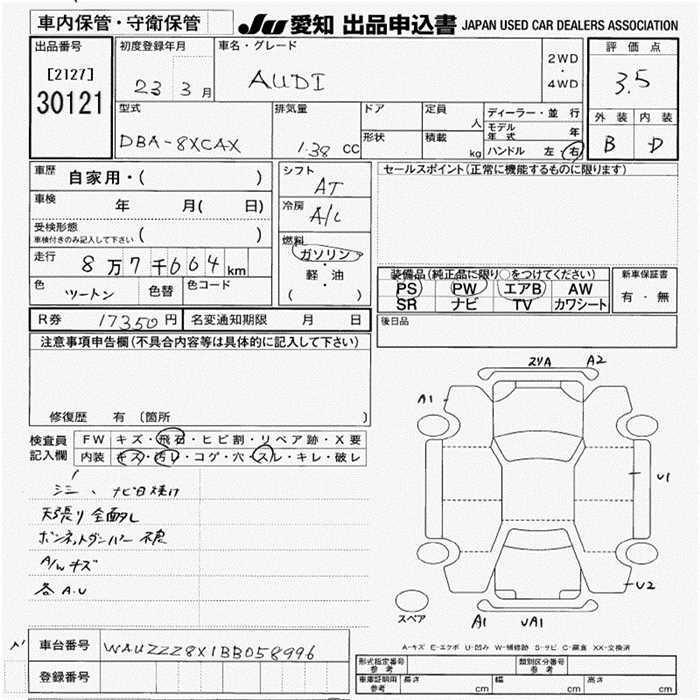 車内保管・守衛保管 JU 愛知 出品申込書 JAPAN USED CAR DEALERS ASSOCIATION
出品番号 初度登録年月 車名・グレード 2WD・4WD 評価点
[2127] 23 3月 AUDI 3.5
30121
型式 排気量 ドア 定員 人 ディーラー・並行 外装 内装
DBA-8XCAX 1.38 CC 形状 積載 kg モデル年式 年 B D
ハンドル 左・右
車歴 自家用・( ) シフト AT セールスポイント(正常に機能するものに限ります)
車検 年 月( 日) 冷房 A/C
受検形態 車検付きのみ記入して下さい ( ) 燃料
走行 8万7千664km ガソリン・軽・油 ( ) 装備品(純正品に限り○をつけてください) 新車保証書
色 ツートン 色替 色コード PS PW エアB AW 有・無
SR ナビ TV カワシート
R券 17350円 名変通知期限 月 日 後日品
注意事項申告欄(不具合内容等は具体的に記入して下さい)
修復歴 有(箇所 )
検査員記入欄 FW キズ・飛石・ヒビ割・リペア跡・X要
内装 キズ・汚レ・コゲ・穴・スレ・キレ・破レ
シミ、ナビ日焼け
天張り全面タレ
ボンネットダンパー不良
A/Wキズ
各A.U
A2
A1
U1
U2
スペア A1 UA1
A-キズ E-エクボ U-凹み W-補修跡 S-サビ C-腐食 XX-交換済
車台番号 WAUZZZ8X1BB058996
登録番号
形式指定番号 参考 類別区分番号 参考
車庫証明用 参考 長さ cm 幅 cm 高さ cm